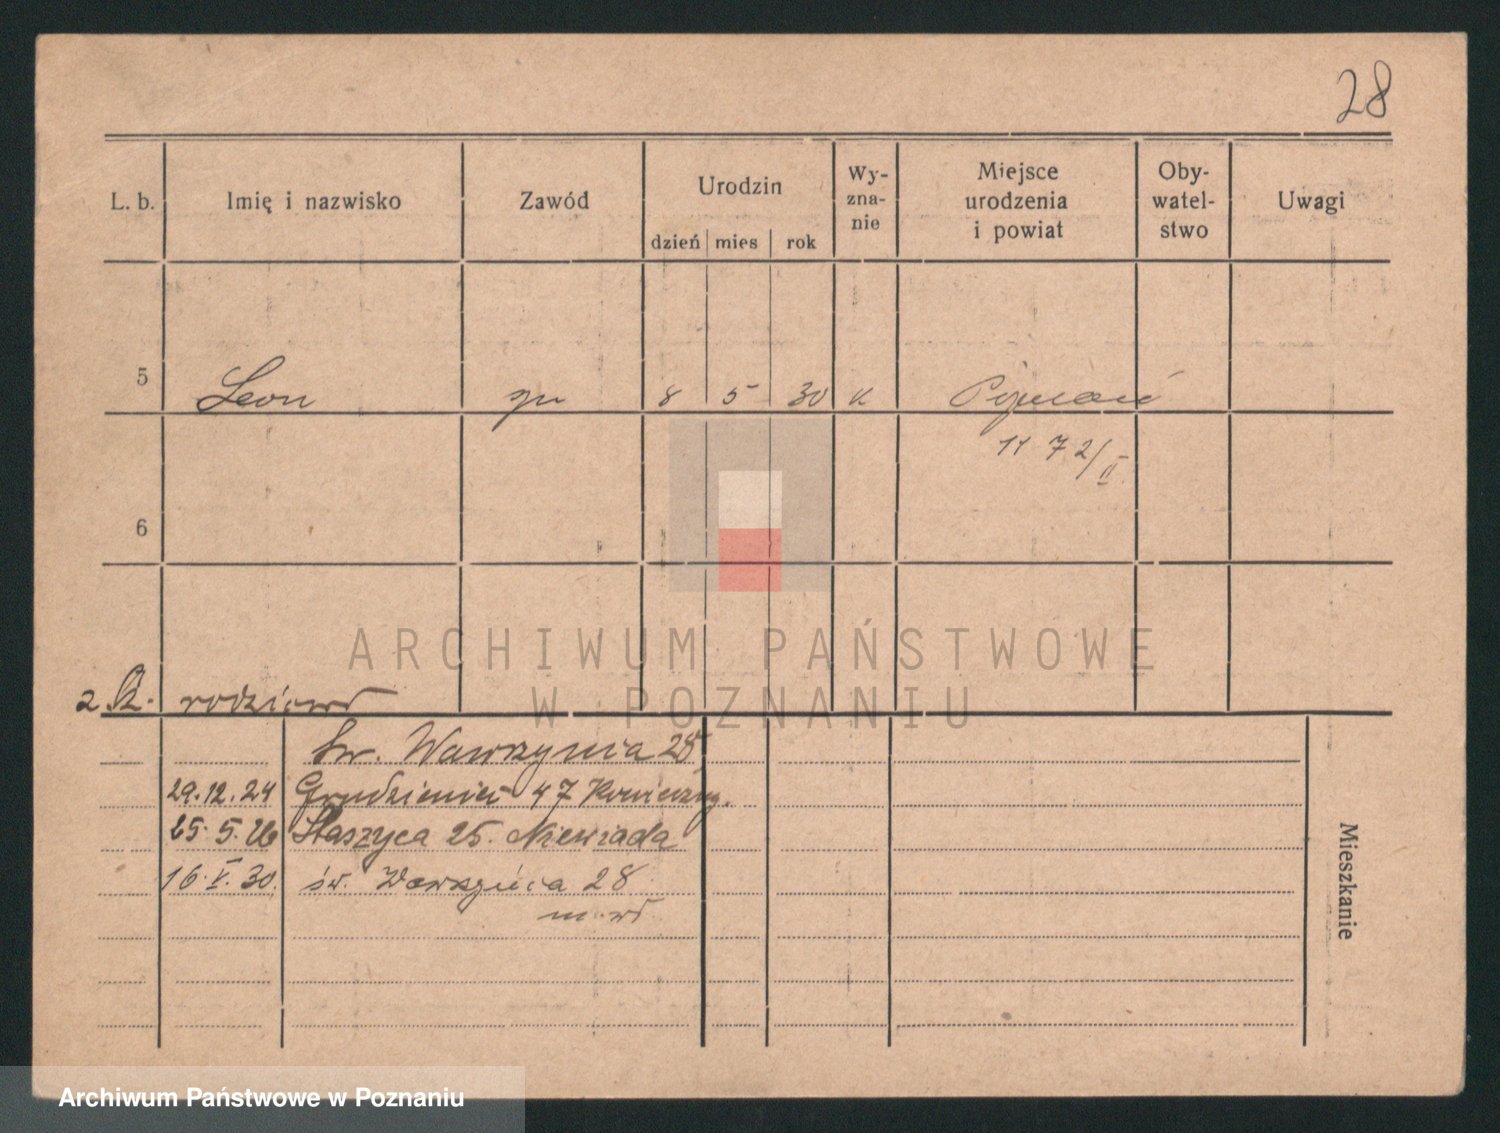 28
L. b. Imię i nazwisko Zawód Urodzin Wy-zna-nie Miejsce urodzenia i powiat Oby-watel-stwo Uwagi
dzień mies rok
5 Leon 8 5 30 k Poznań
11 72/II
6
ARCHIWUM PAŃSTWOWE
W POZNANIU
z K. rodziców
św. Wawrzyńca 28
29.12.24 Grudzieniec 47
25.5.26 Staszyca 25. Niewiada
16.V.30. św. Wawrzyńca 28
Mieszkanie
Archiwum Państwowe w Poznaniu